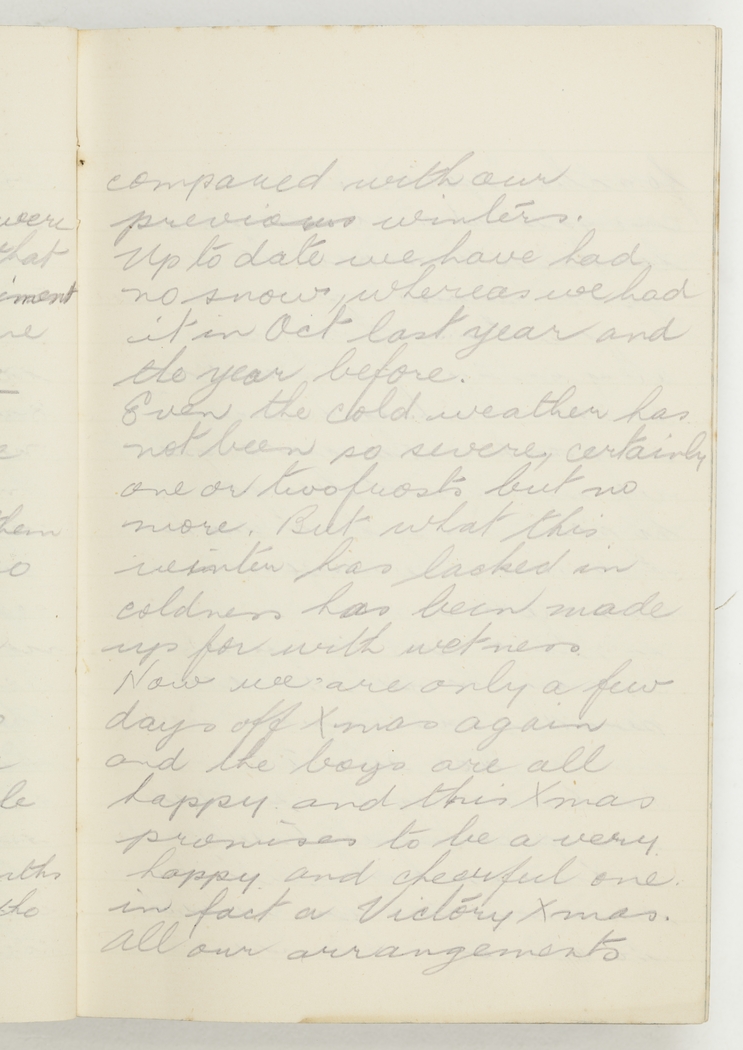 compared with our
previous winters.
Up to date we have had
no snow, whereas we had
it in Oct last year and
the year before.
Even the cold weather has
not been so severe, certainly
one or two frosts but no
more. But what this
winter has lacked in
coldness has been made
up for with wetness
Now we are only a few
days off Xmas again
and the boys are all
happy and this Xmas
promises to be a very
happy and chearful one.
in fact a Victory Xmas.
All our arrangements
were
that
iment
ne
e
them
o
le
nths
tho